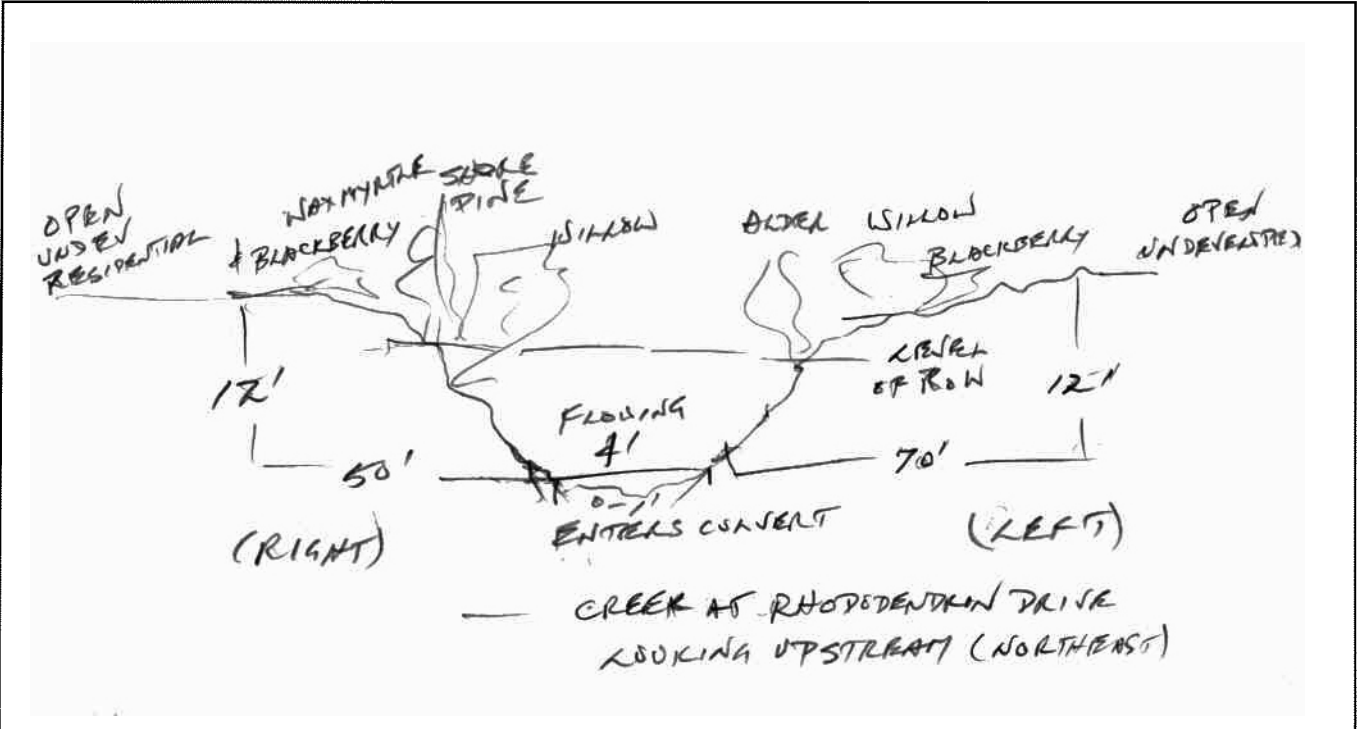 OPEN
UNDEV
RESIDENTIAL
WAXMYRTLE
& BLACKBERRY
SHORE
PINE
WILLOW
ALDER
WILLOW
BLACKBERRY
OPEN
UNDEVELOPED
LEVEL
OF ROW
12'
12'
FLOWING
4'
50'
70'
0-1'
ENTERS CULVERT
(RIGHT)
(LEFT)
— CREEK AT RHODODENDRON DRIVE
LOOKING UPSTREAM (NORTHEAST)